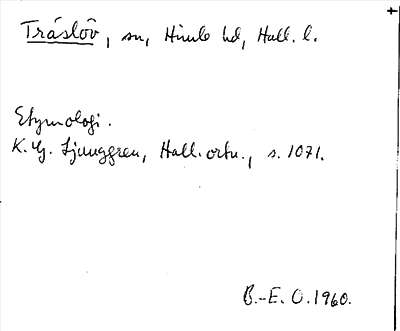 Tráslöv, sn, Himle hd, Hall. l.
Etymologi.
K. G. Ljunggren, Hall. ortn., s. 1071.
B.-E. O. 1960.